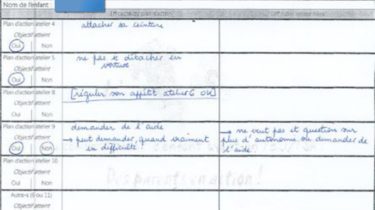 Nom de l'enfant
Plan d'action atelier 4
attacher sa ceinture
Objectif atteint
Oui Non
Plan d'action atelier 5
ne pas se détacher en
voiture
Objectif atteint
Oui Non
Plan d'action atelier 8
[réguler son appétit atelier 6 OU]
Objectif atteint
Oui Non
Plan d'action atelier 9
demander de l'aide
Objectif atteint
→ peut demander quand vraiment
en difficulté
Oui Non
→ ne veut pas et question sur
plus d'autonomie ou demander de
l'aide
Plan d'action atelier 10
Objectif atteint
Oui Non
Des parents en action !
Autre-s (6 ou 11)
Objectif atteint
Oui Non